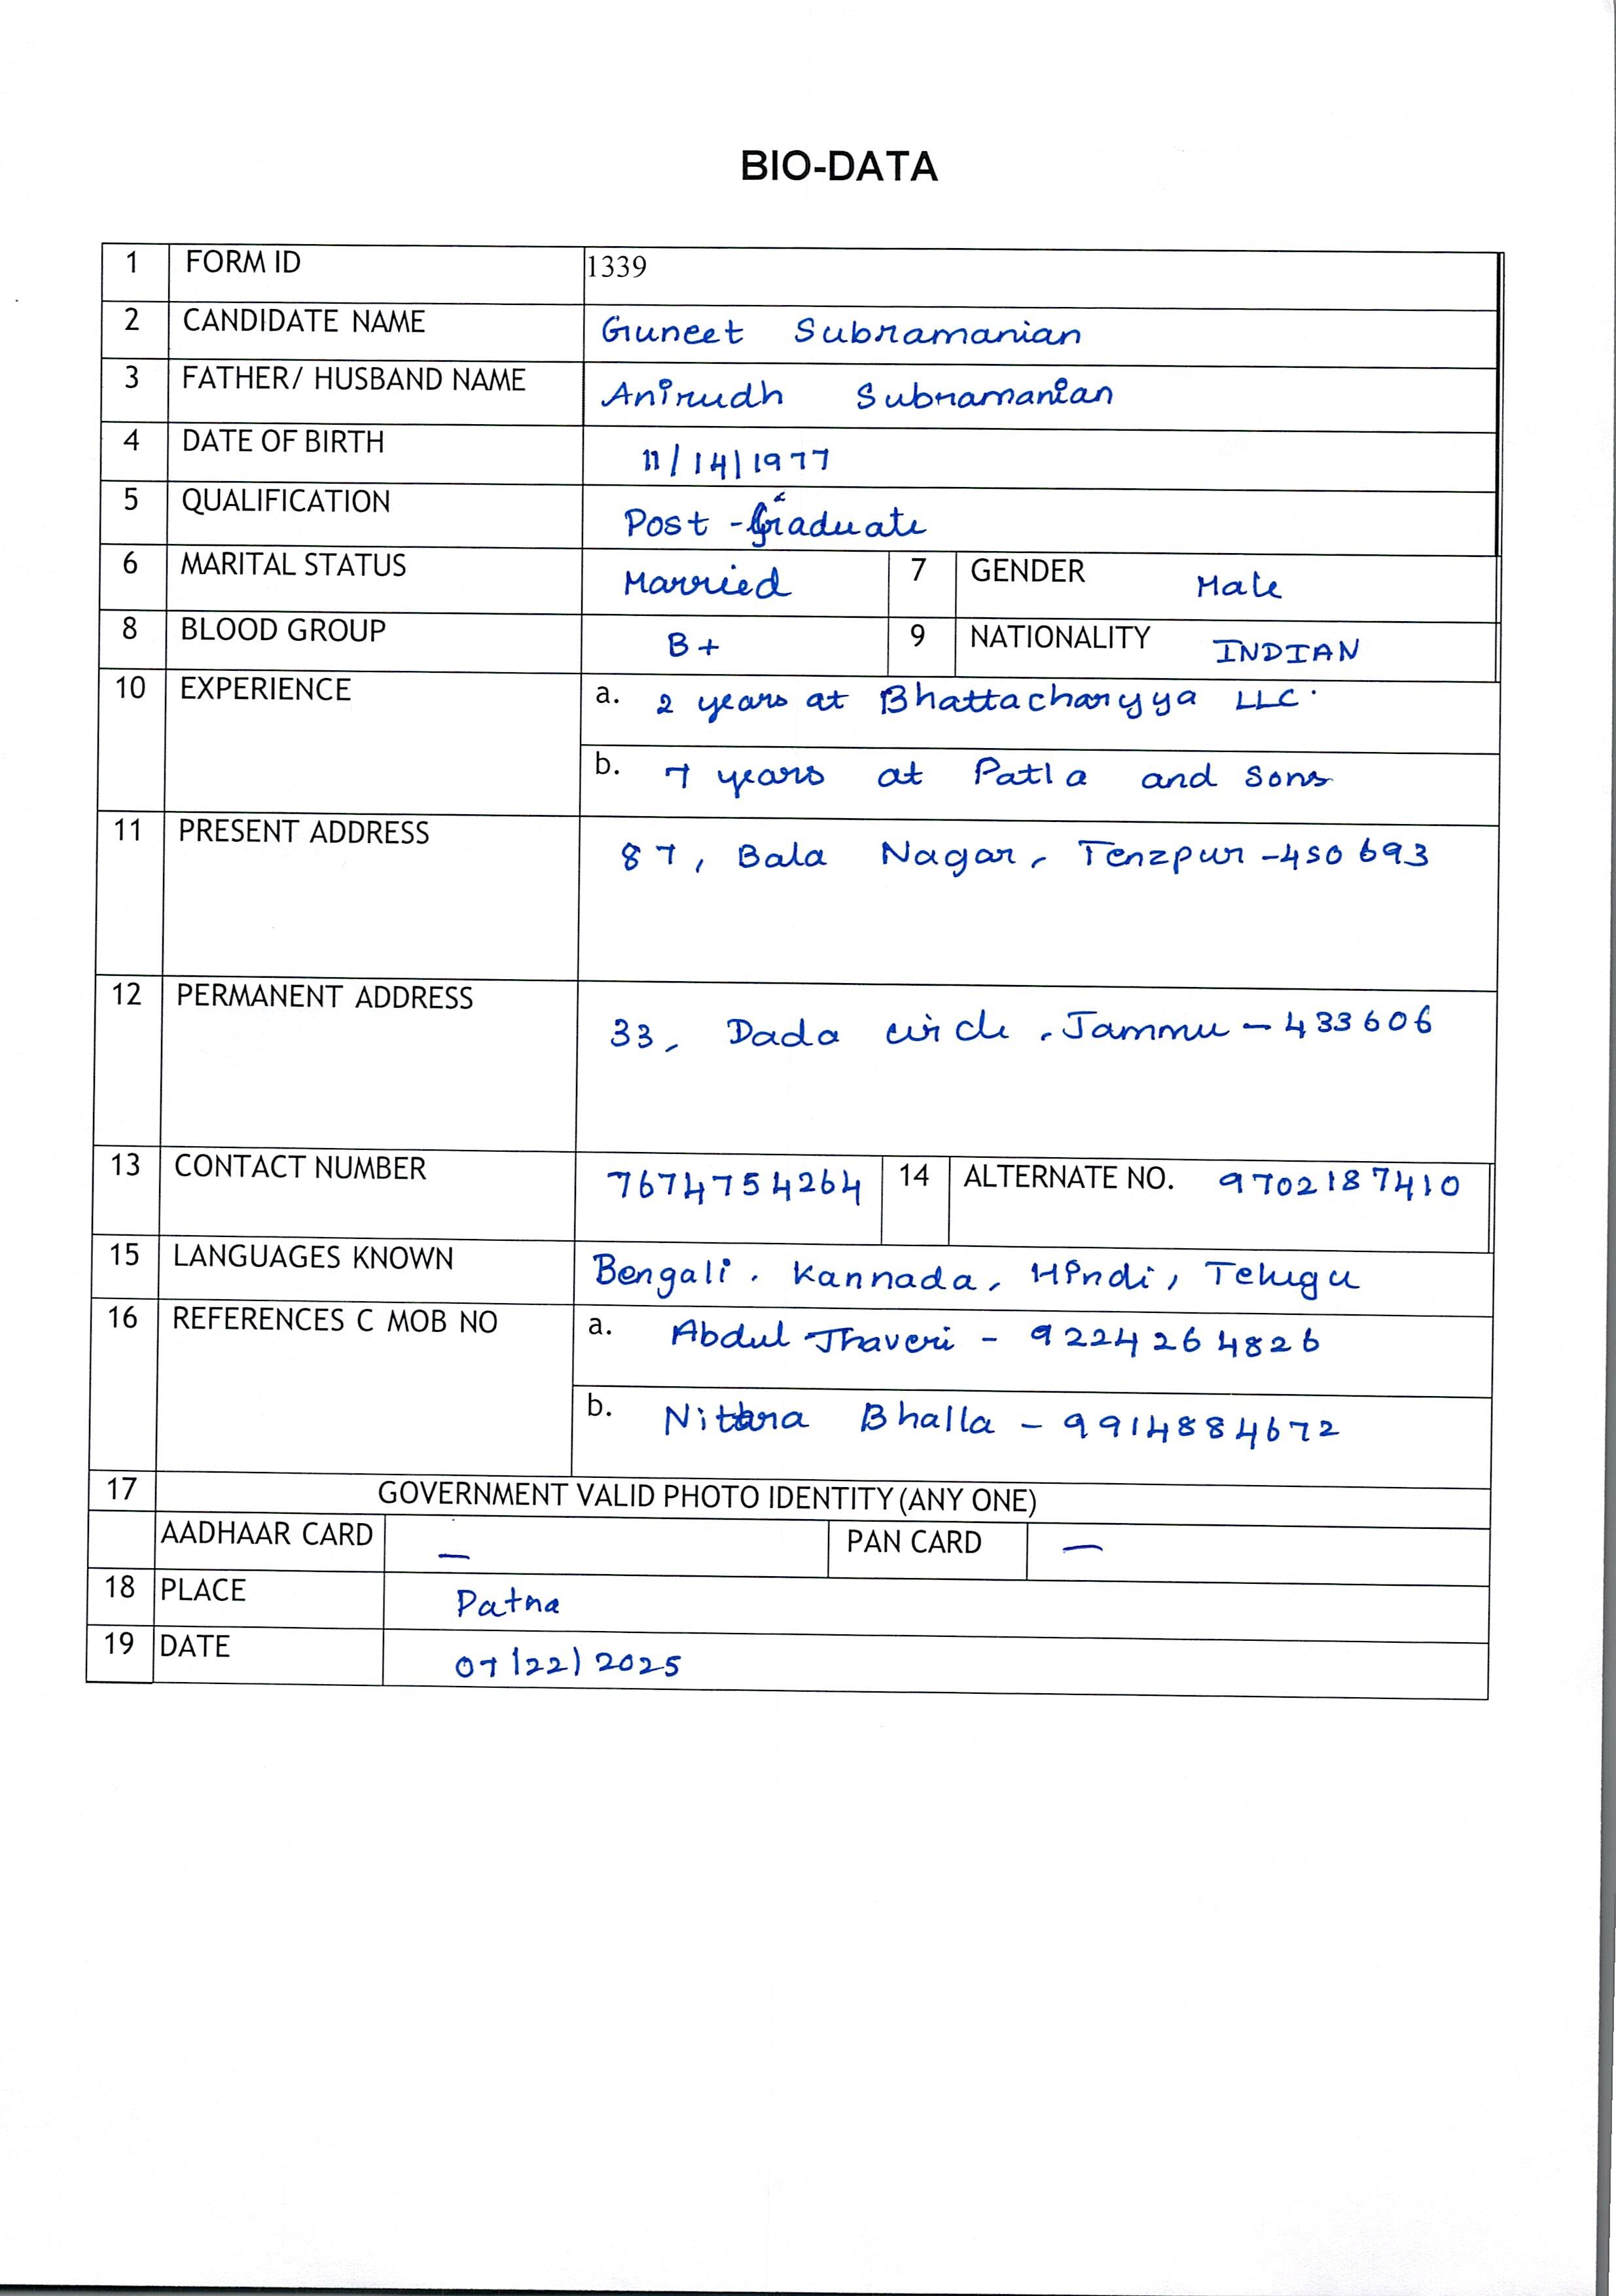 BIO-DATA
1 FORM ID 1339
2 CANDIDATE NAME Guneet Subramanian
3 FATHER/ HUSBAND NAME Anirudh Subramanian
4 DATE OF BIRTH 11/14/1977
5 QUALIFICATION Post-Graduate
6 MARITAL STATUS Married 7 GENDER Male
8 BLOOD GROUP B+ 9 NATIONALITY INDIAN
10 EXPERIENCE a. 2 years at Bhattacharyya LLC.
b. 7 years at Patla and Sons
11 PRESENT ADDRESS 87, Bala Nagar, Tenzpur-450693
12 PERMANENT ADDRESS 33, Dada circle, Jammu-433606
13 CONTACT NUMBER 7674754264 14 ALTERNATE NO. 9702187410
15 LANGUAGES KNOWN Bengali, Kannada, Hindi, Telugu
16 REFERENCES C MOB NO a. Abdul Jhaveri - 9224264826
b. Nitara Bhalla - 9914884672
17 GOVERNMENT VALID PHOTO IDENTITY (ANY ONE)
AADHAAR CARD — PAN CARD —
18 PLACE Patna
19 DATE 07/22/2025